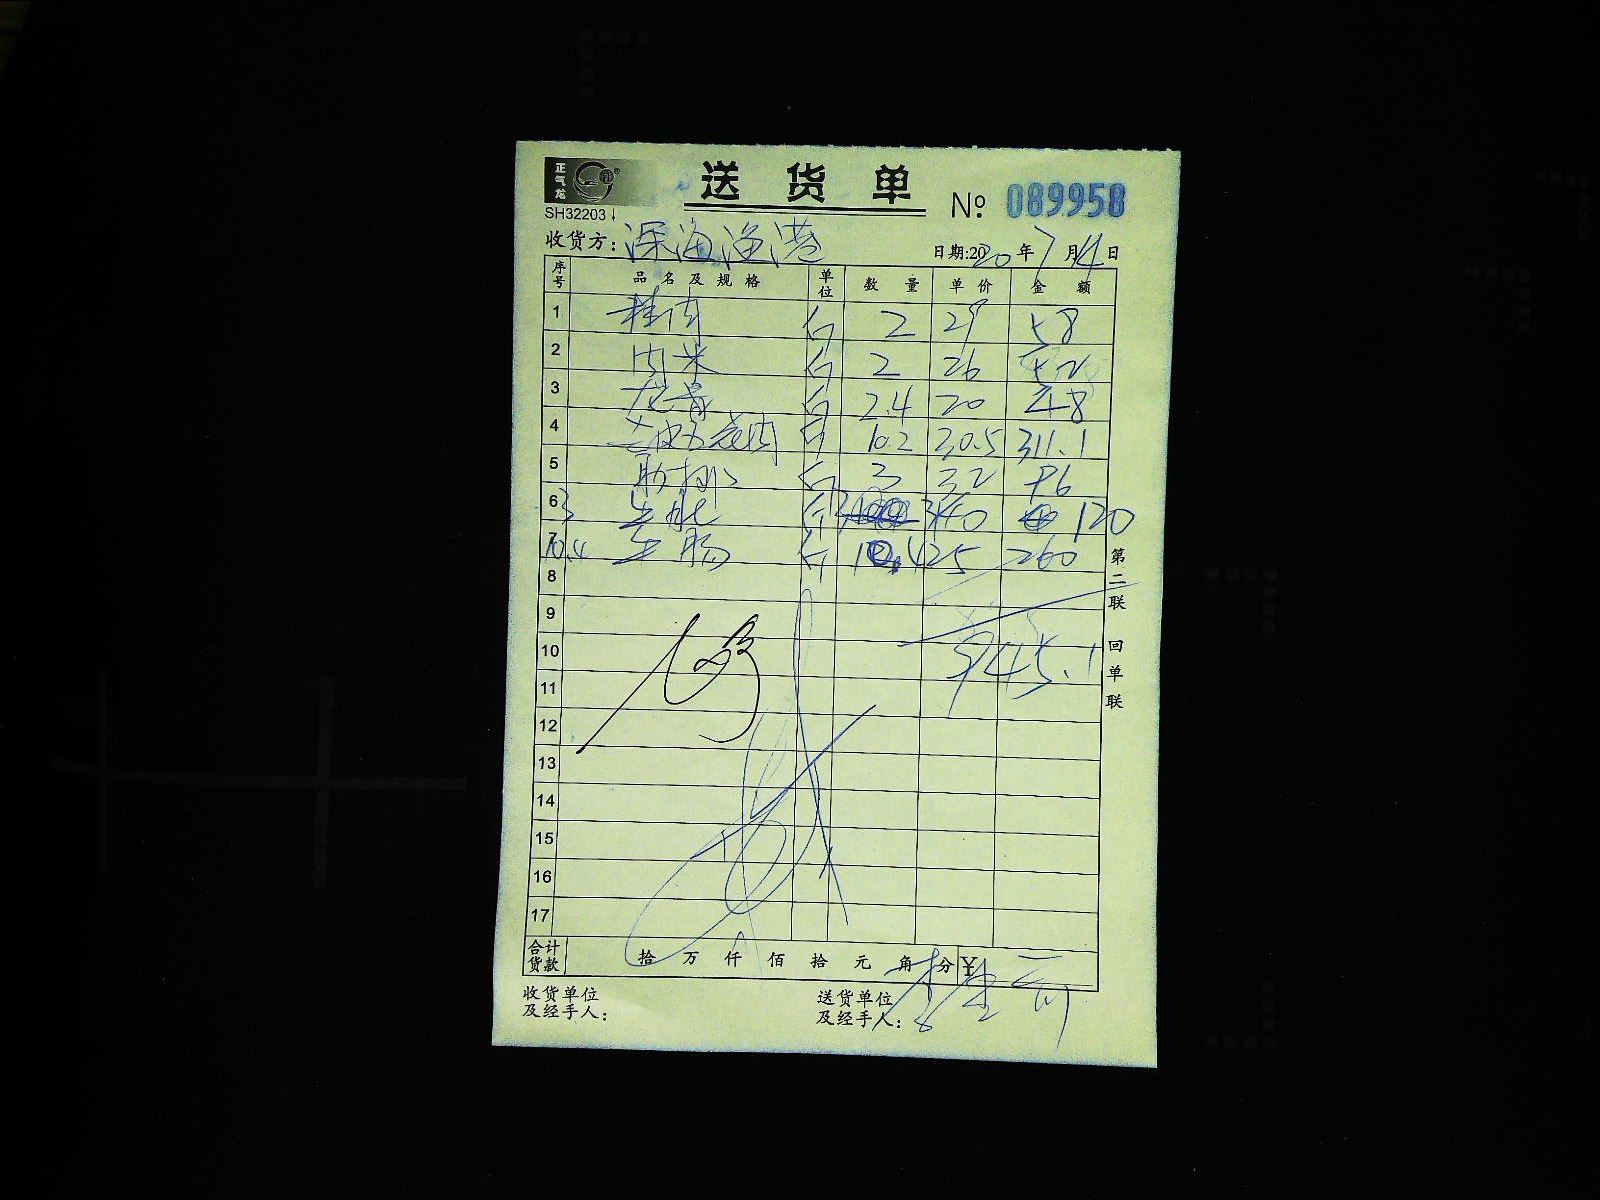 正气龙
送货单
SH32203↓
№ 089958
收货方：深海渔港 日期:2020年7月14日
序号 品名及规格 单位 数量 单价 金额
1 精肉 斤 2 29 58
2 肉米 斤 2 26 52
3 龙骨 斤 2.4 20 48
4 斤 10.2 30.5 311.1
5 肋排 斤 3 32 96
6 3 生肚 斤 3 40 120
7 10.4 生肠 斤 10.4 25 260
8
9
10 945.1
11
12
13
14
15
16
17
第二联 回单联
合计货款 拾 万 仟 佰 拾 元 角 分 ¥
收货单位及经手人： 送货单位及经手人：